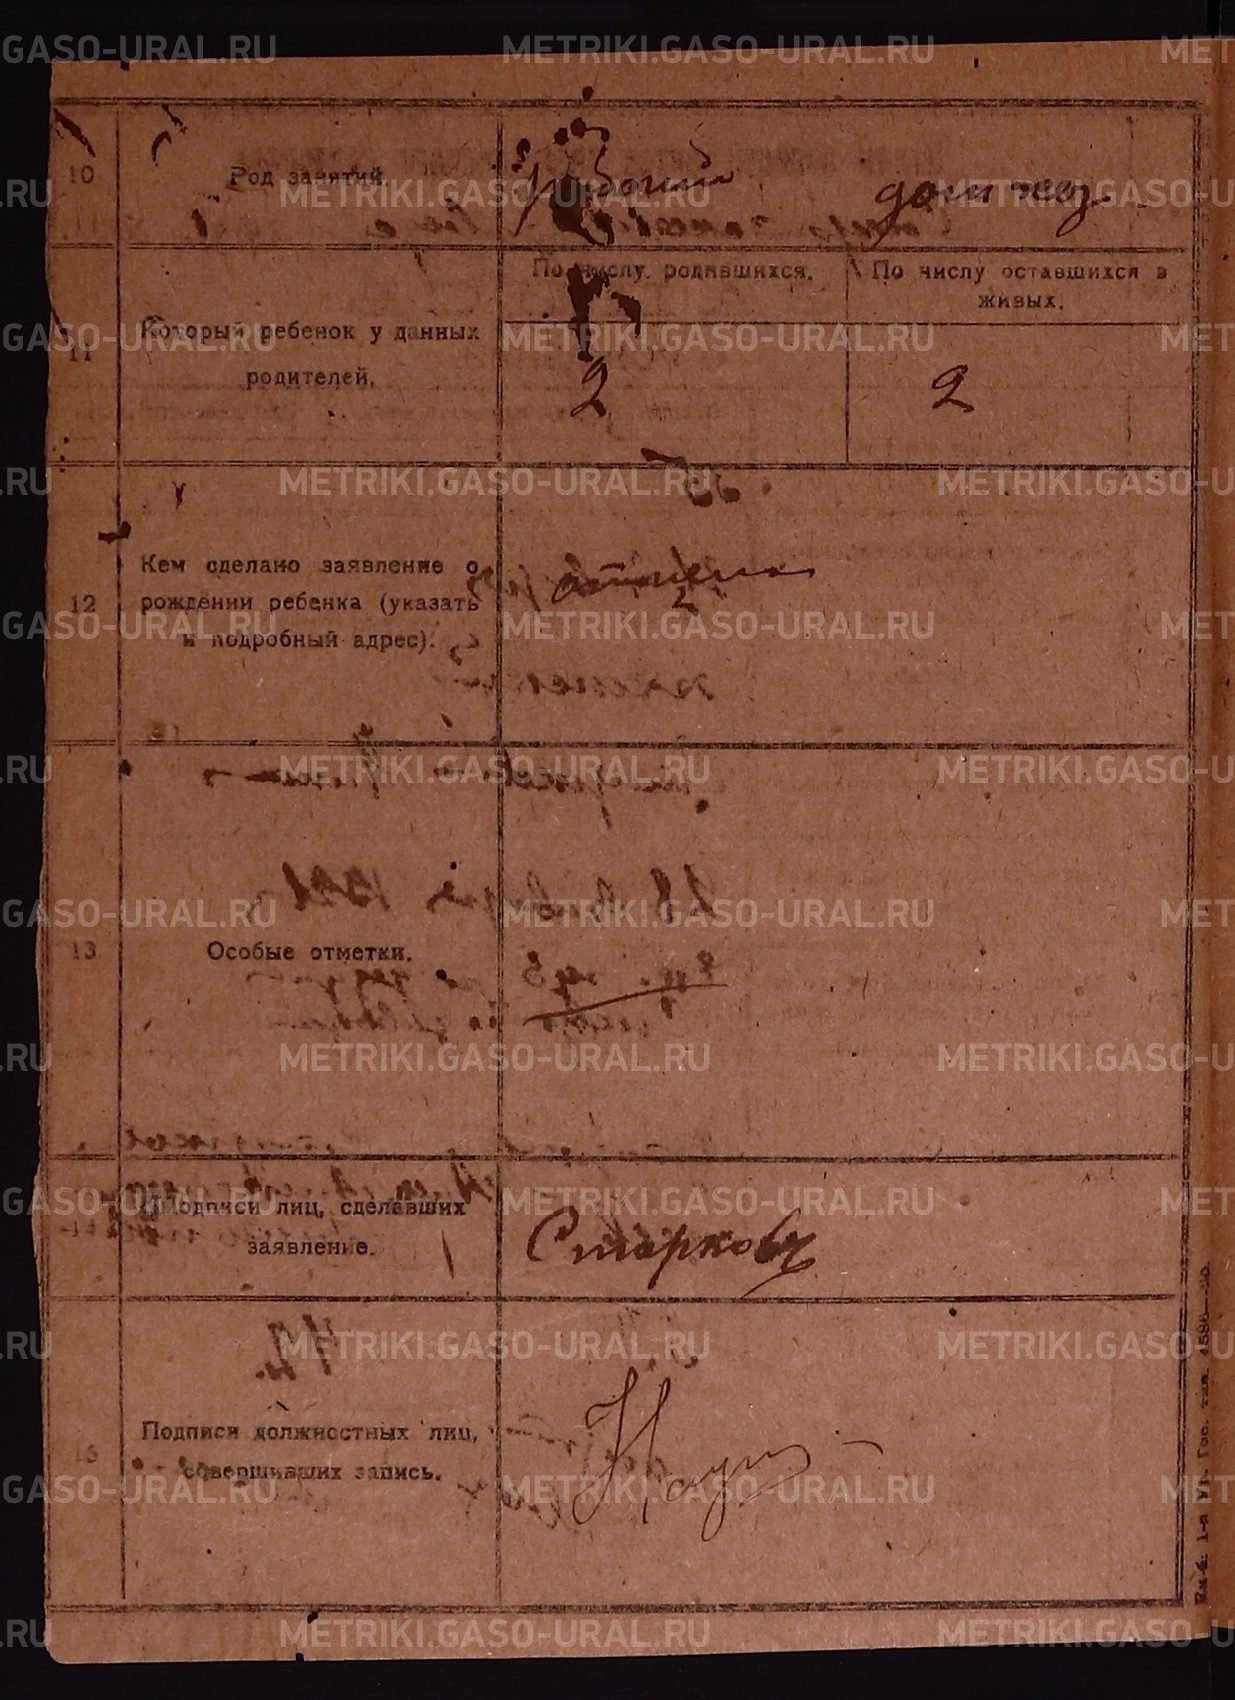 METRIKI.GASO-URAL.RU
10
Род занятий.
рабочий
дом хоз.
11
Который ребенок у данных
родителей,
По числу родившихся.
По числу оставшихся в
живых.
2
2
12
Кем сделано заявление о
рождении ребенка (указать
и подробный адрес).
отцем
13
Особые отметки.
Подписи лиц, сделавших
заявление.
Старков
15
Подписи должностных лиц,
совершивших запись.